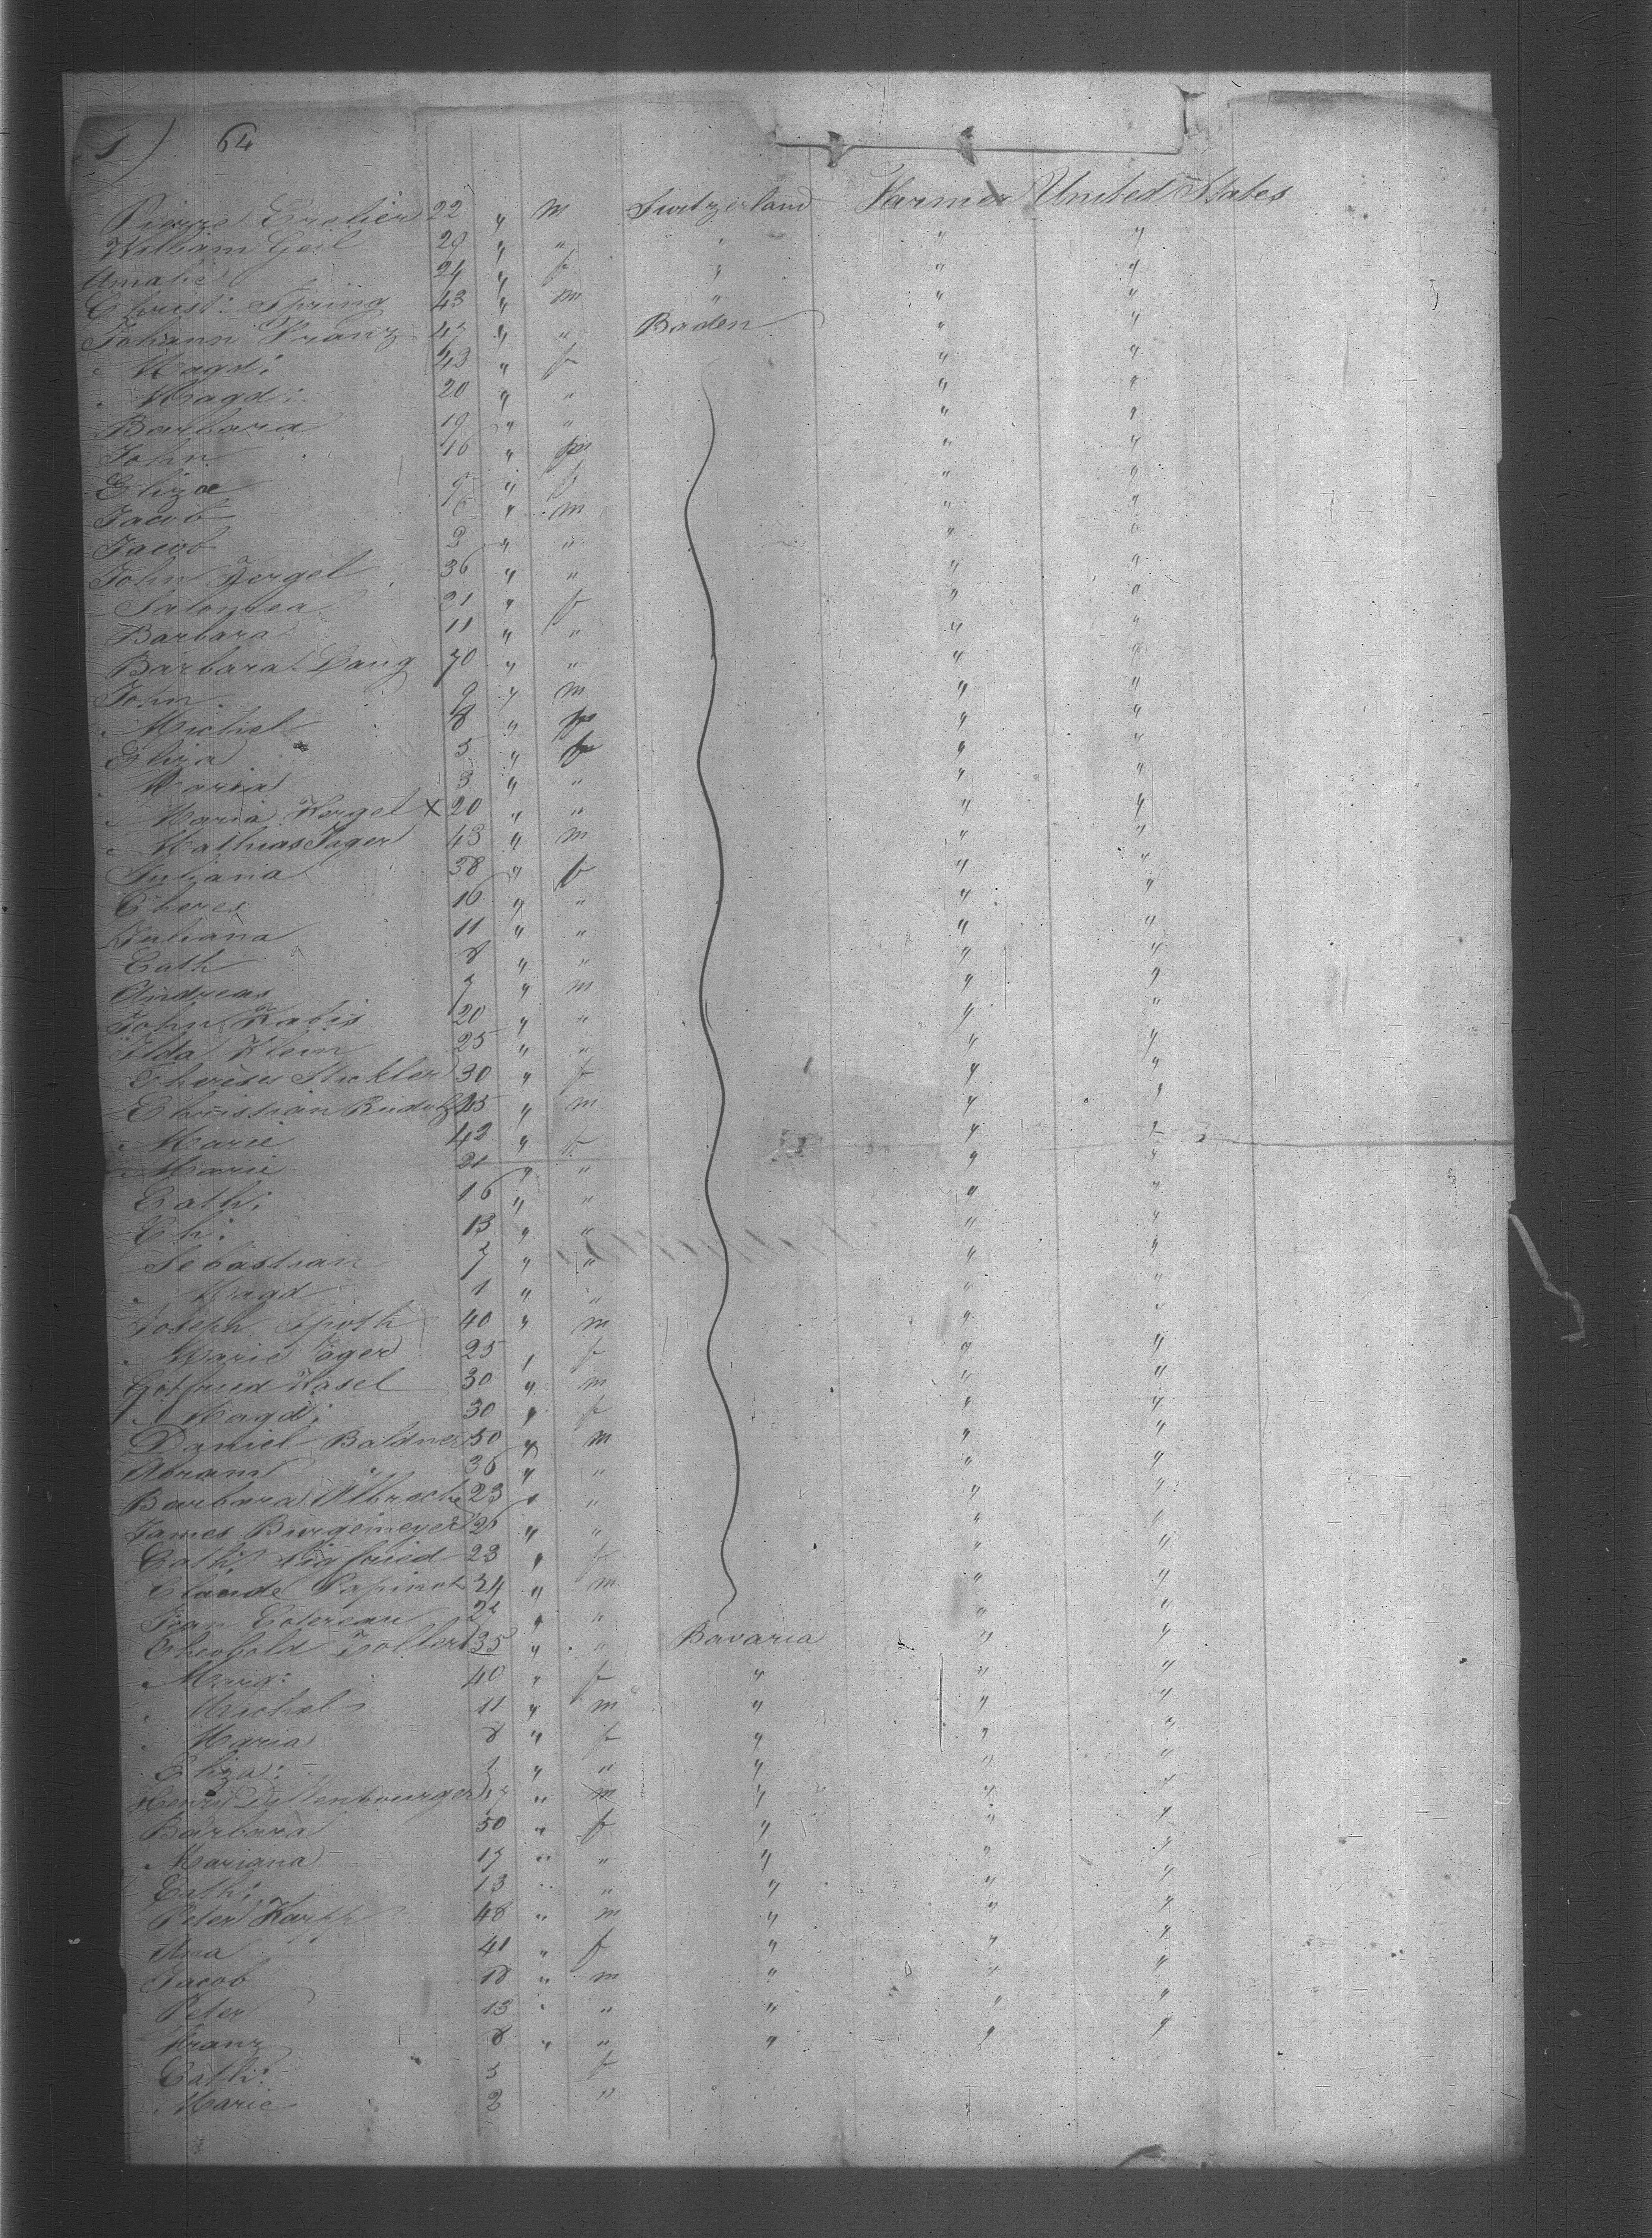 1) 64
Pierre Crelier 22 " m Switzerland Farmer United States
William Geil 29 " " " " "
Amalie 24 " f " " "
Christ: Spring 43 " m " " "
Johann Franz 47 " " Baden " "
" Magd: 43 " f " "
" Magd: 20 " " " "
Barbara 19 " " " "
John 16 " m " "
Eliza 9 " f " "
Jacob 6 " m " "
Jacob 3 " " " "
John Jergel 36 " " " "
Salomea 21 " f " "
Barbara 11 " " " "
Barbara Lang 70 " " " "
John 9 " m " "
Michel 8 " " "
Eliza 5 " f " "
Maria 3 " " " "
Maria Hergel X 20 " " " "
Mathias Jager 43 " m " "
Juliana 38 " f " "
Theres 16 " " " "
Juliana 11 " " " "
Cath 8 " " " "
Andreas 7 " m " "
John 20 " " " "
Ilda Klein 25 " " " "
Therese Stickler 30 " f " "
Christian 45 " m " "
Marie 42 " f " "
Marie 21 " " " "
Cath: 16 " " " "
Ch: 13 " " " "
Sebastian 7 " " " "
" Magd 1 " " " "
Joseph Spoth 40 " m " "
" Marie Jager 25 " f " "
Gotfried Hasel 30 " m " "
" Magd: 30 " f " "
Daniel Baldner 50 " m " "
Abram 36 " " " "
Barbara Albrecht 23 " " " "
James Burgemeyer 26 " " " "
Cath: Sigfried 23 " f " "
Claude Papinot 24 " m " "
Jean Cotereau " " " "
Theobold Zoller 35 " " Bavaria " "
" Marg: 40 " f " " "
" Michel 11 " m " " "
" Maria 8 " f " " "
Eliza: " " " " "
Henri Dillenbourger " m " " "
Barbara 50 " f " " "
Mariana 17 " " " " "
Cath: 13 " " " " "
Peter Karpp 48 " m " " "
Ana 41 " f " " "
Jacob 18 " m " " "
Peter 13 " " " " "
Franz 8 " " " " "
Cath: 5 f
Marie 2 "